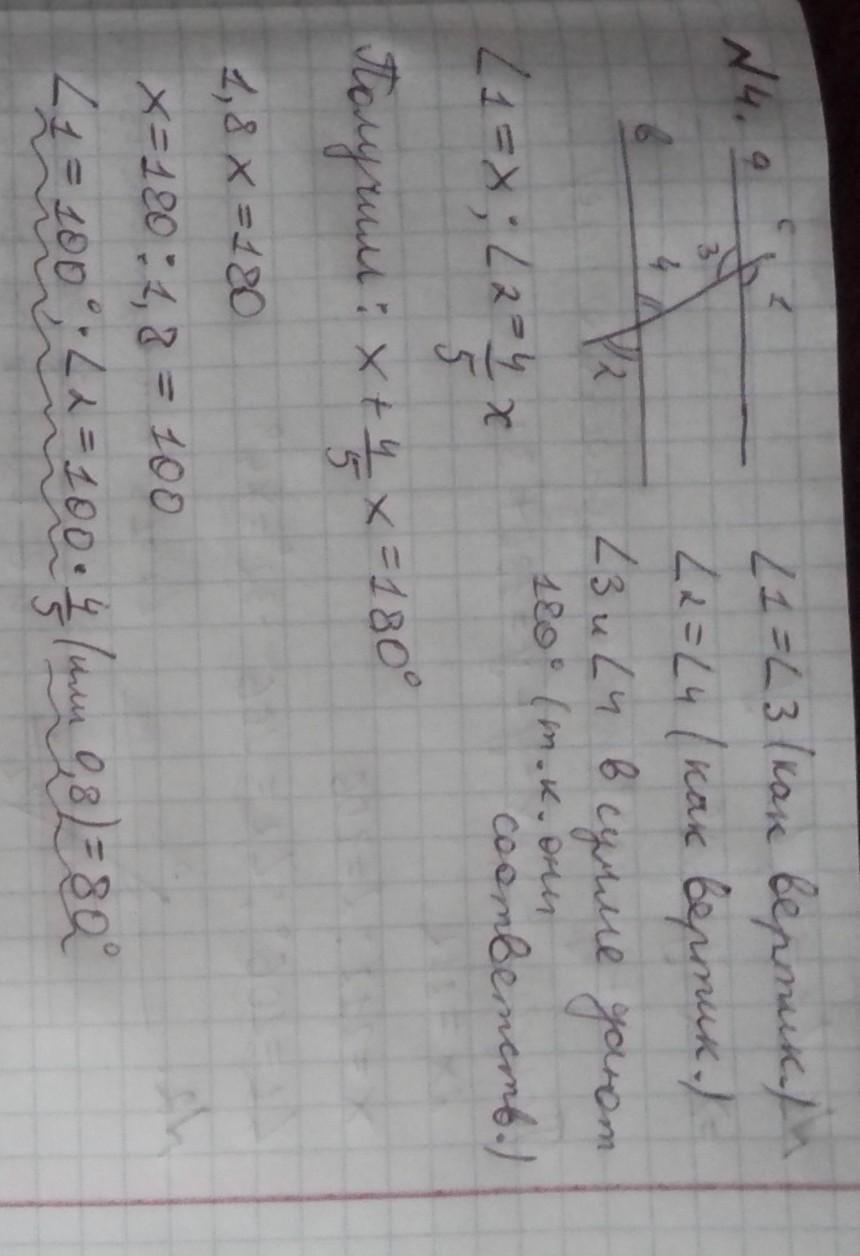 N4.
a
c
1
3
b
4
2
∠1=∠3 (как вертик.)
∠2=∠4 (как вертик.)
∠3 и ∠4 в сумме дают
180° (т.к. они
соответств.)
∠1=x; ∠2=4/5 x
Получим: x+4/5 x=180°
1,8x=180
x=180:1,8=100
∠1=100°; ∠2=100·4/5 (или 0,8)=80°